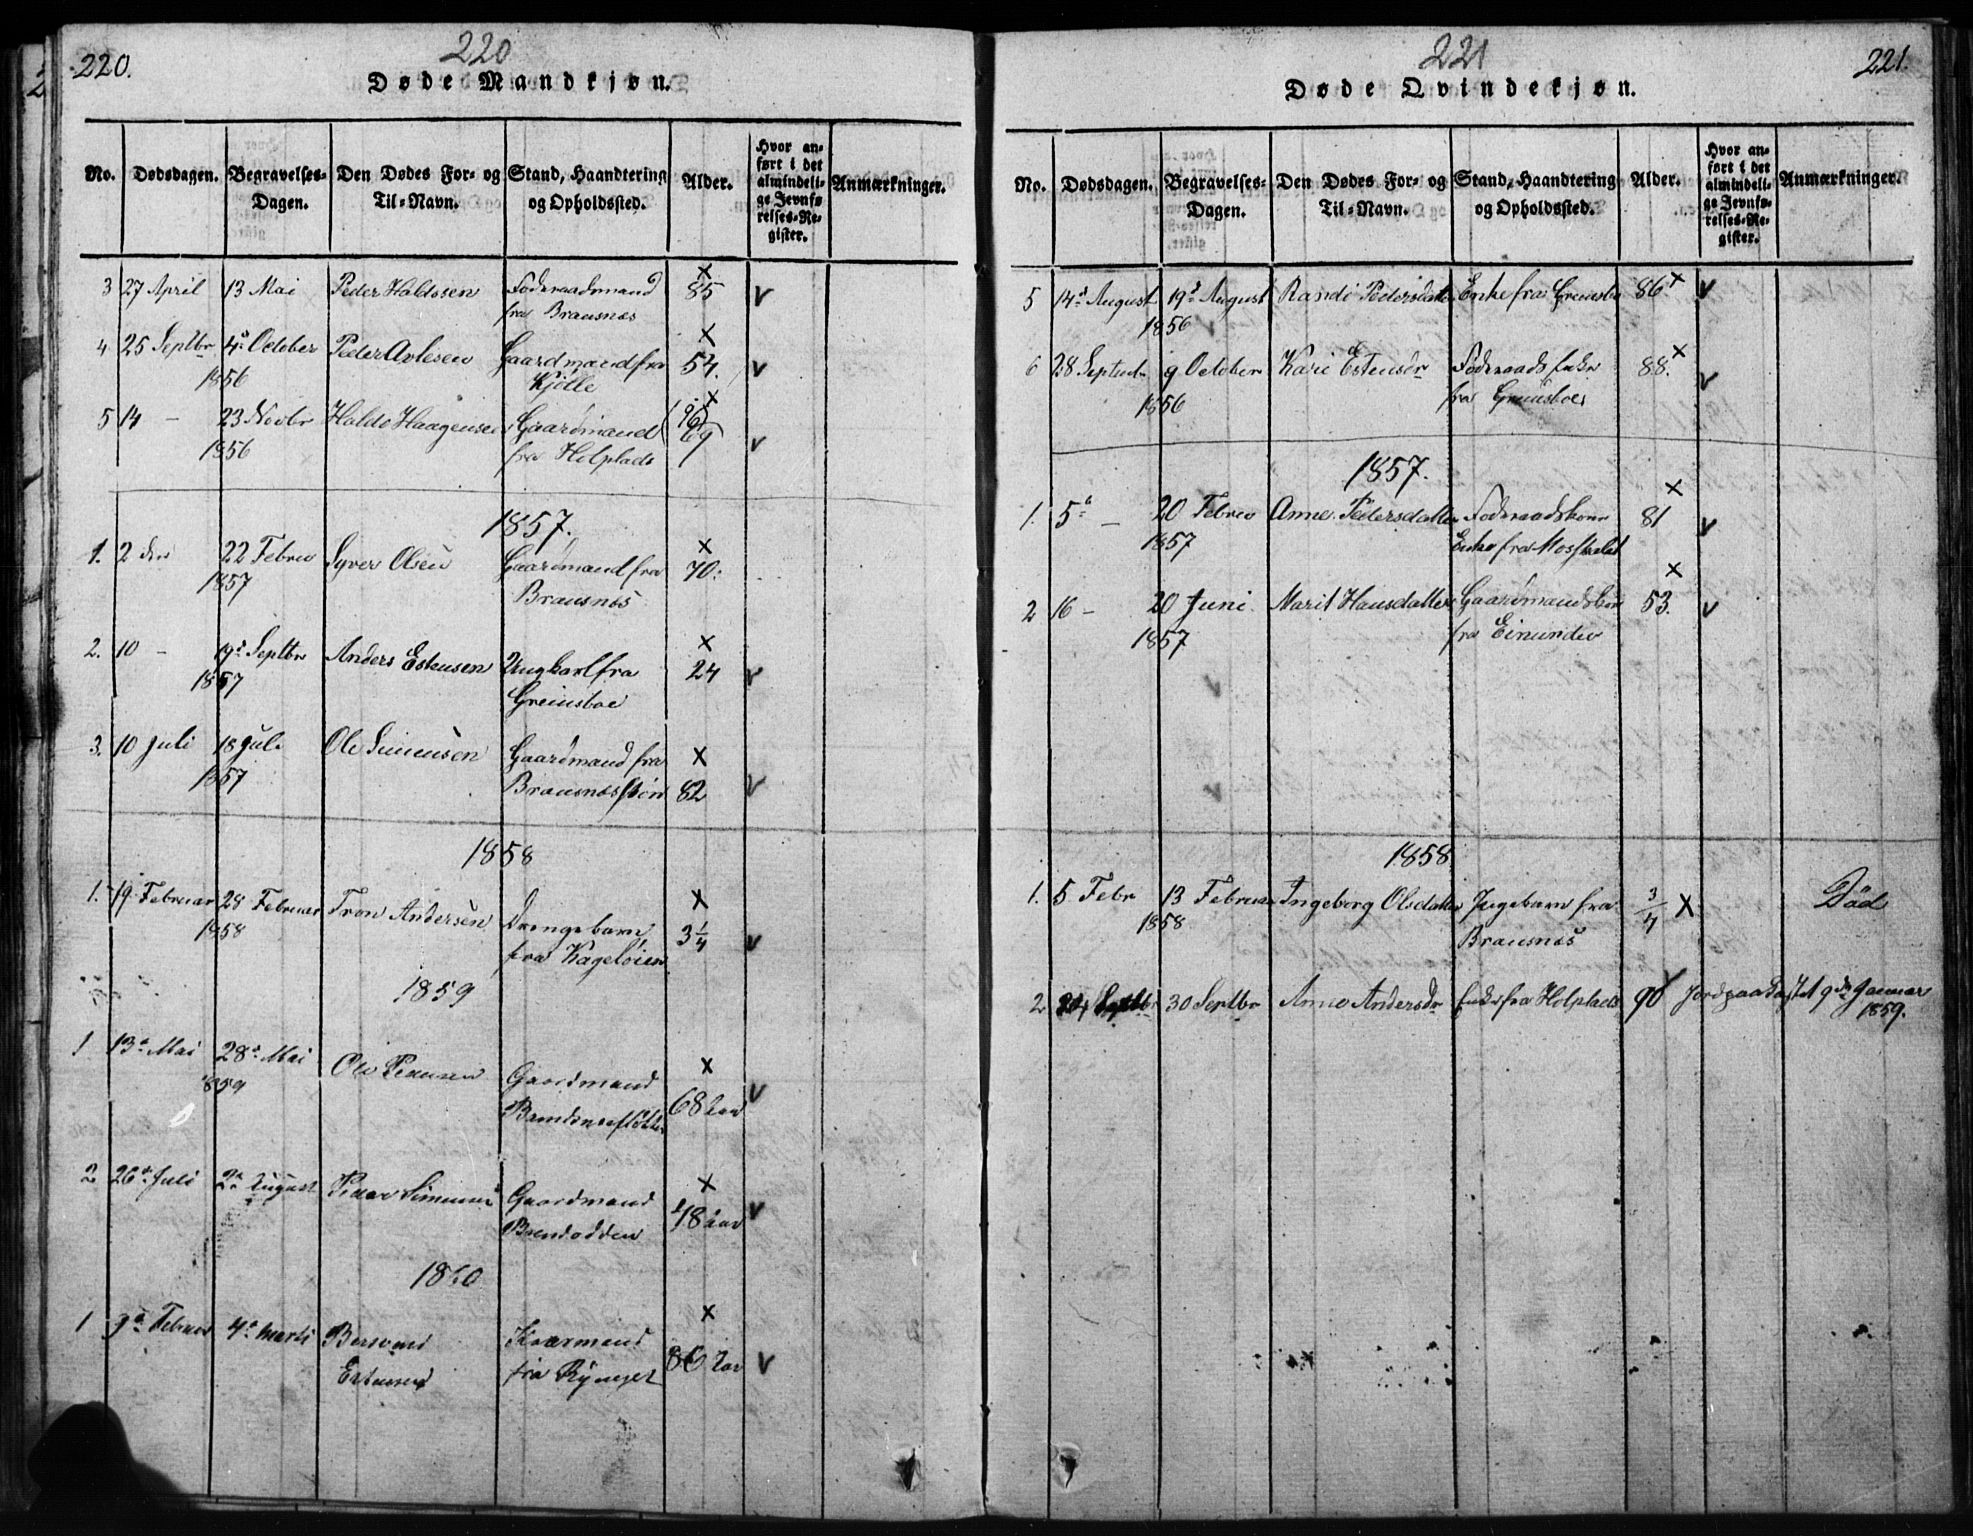 220.
220
Døde Mandkjøn.
No. Dødsdagen. Begravelses-Dagen. Den Dødes For- og Til-Navn. Stand, Haandtering og Opholdssted. Alder. Hvor anført i det almindelige Jevnførelses-Register. Anmærkninger.
3 27 April 13 Mai Peder Haldosen Føderaadsmand 85
fra Brænsnes
4 25 Septbr 4de October Peder Gaardmand fra 54.
1856 Kjølle
5 14 – 23 Novbr Haldo Haagensen Gaardmand 69
1856 fra Holplads
1857.
1. 2den 22 Februar Syver Olsen Gaardmand fra 70.
1857
2. 10 – 19de Septbr Anders Estensen Ungkarl fra 24
1857 Greinsboe
3. 10 Juli 18 Juli Ole Simensen Gaardmand fra
1857 82
1858
1. 19 Februar 28 Februar Tron Andersen Drengebarn 3 1/4
1858 fra
1859
1 13de Mai 28de Mai Ole Gaardmand
1859 68 Aar
2 26de Juli 2de August Peder Simensen Gaardmand 48 Aar
1860
1 9de Februar 4de Marts Gaardmand
Estensen fra 86 Aar
221
221.
Døde Qvindekjøn.
No. Dødsdagen. Begravelses-Dagen. Den Dødes For- og Til-Navn. Stand, Haandtering og Opholdssted. Alder. Hvor anført i det almindelige Jevnførelses-Register. Anmærkninger.
5 14de August 19de August Randi Pedersdatter Enke fra 86
1856
6 28 Septembr 9 October Kari Estensdr Føderaads Enke 88.
1856 fra
1857.
1. 5te – 20 Februar Anne Pedersdatter Føderaadskone 81
1857 Enke fra
2 16 – 20 Juni Marit Hansdatter Gaardmandskone 53.
1857 fra Einunden
1858
1. 5 Febr 13 Februar Ingeborg Olsdatter Pigebarn fra 3/4 Död
1858
2 24 Septbr 30 Septbr Anne Andersdr Enke fra Holplads 90 Jordpaakastet 9de Januar
1859.